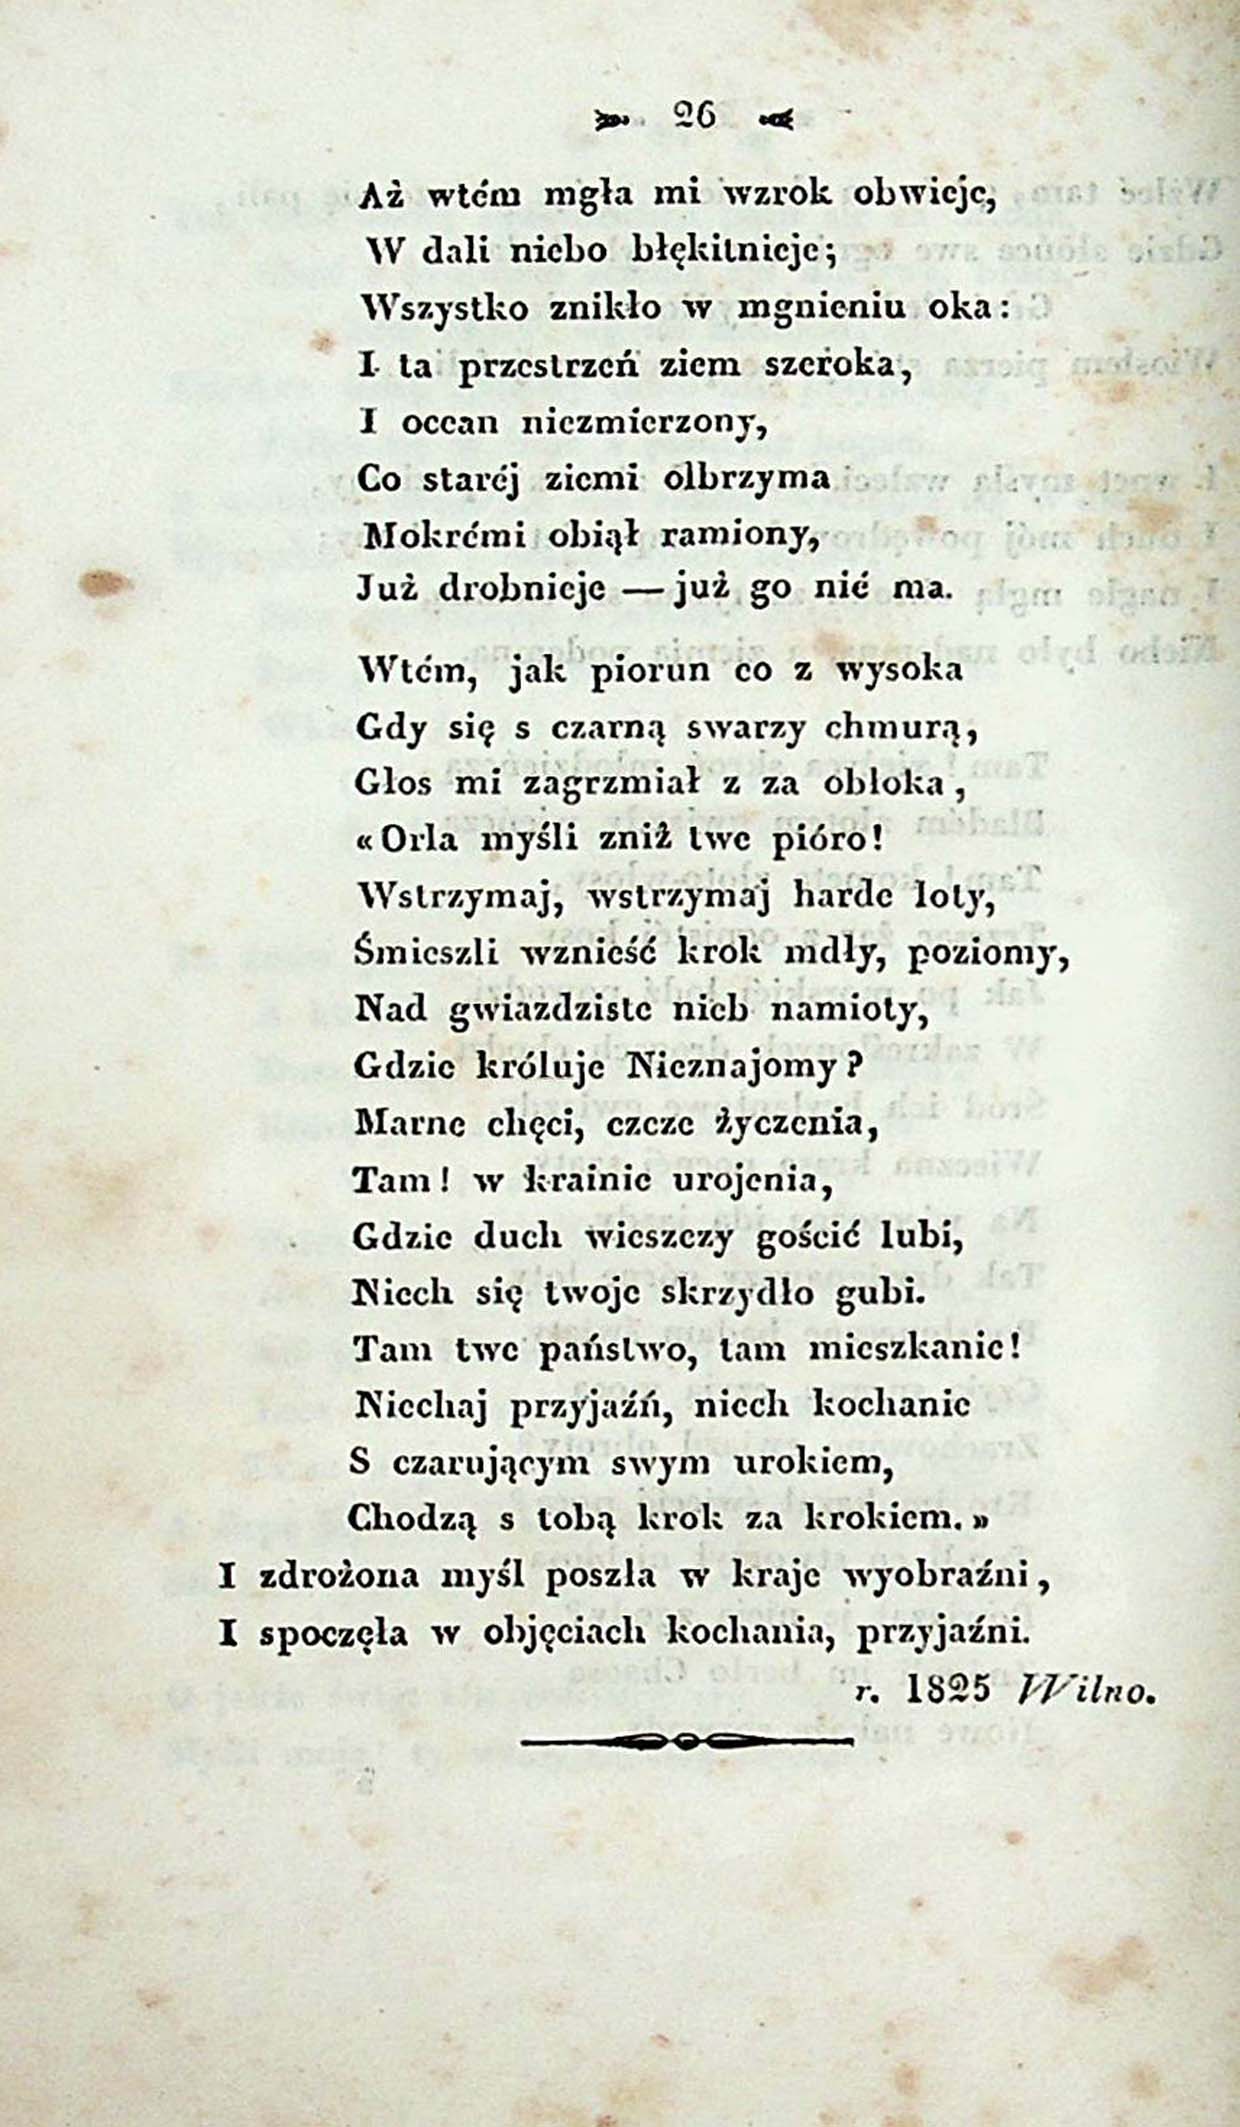 26
Aż wtém mgła mi wzrok obwieje,
W dali niebo błękitnieje;
Wszystko znikło w mgnieniu oka:
I ta przestrzeń ziem szeroka,
I ocean niezmierzony,
Co staréj ziemi olbrzyma
Mokrémi obiął ramiony,
Już drobnieje — już go nié ma.
Wtém, jak piorun co z wysoka
Gdy się s czarną swarzy chmurą,
Głos mi zagrzmiał z za obłoka,
«Orla myśli zniż twe pióro!
Wstrzymaj, wstrzymaj harde loty,
Śmieszli wznieść krok mdły, poziomy,
Nad gwiazdziste nieb namioty,
Gdzie króluje Nieznajomy?
Marne chęci, czcze życzenia,
Tam! w krainie urojenia,
Gdzie duch wieszczy gościć lubi,
Niech się twoje skrzydło gubi.
Tam twe państwo, tam mieszkanie!
Niechaj przyjaźń, niech kochanie
S czarującym swym urokiem,
Chodzą s tobą krok za krokiem.»
I zdrożona myśl poszła w kraje wyobraźni,
I spoczęła w objęciach kochania, przyjaźni.
r. 1825 Wilno.